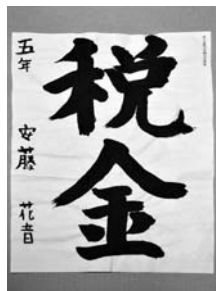 税金
五年 安藤 花音